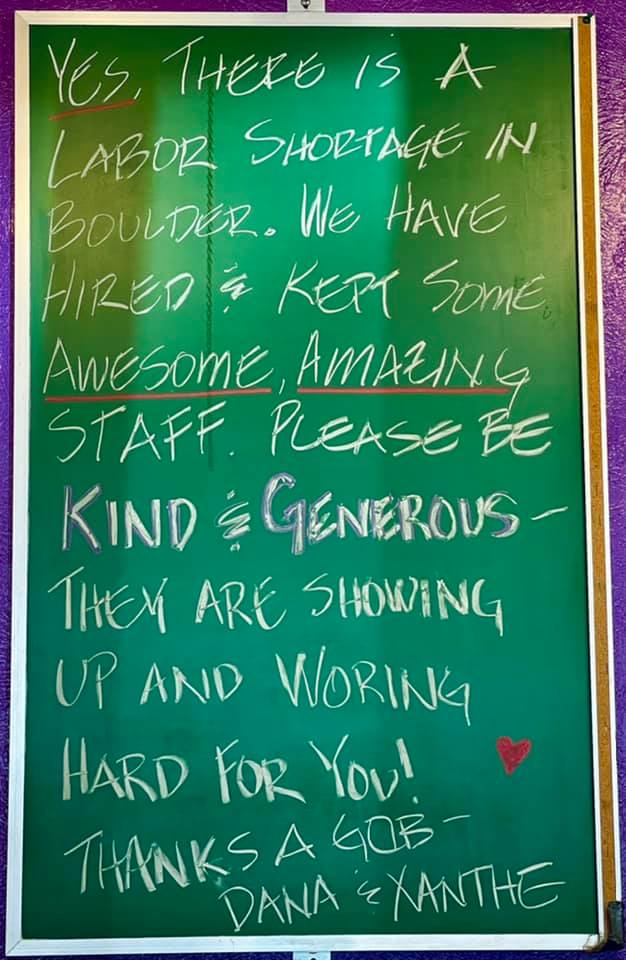 YES, THERE IS A
LABOR SHORTAGE IN
BOULDER. WE HAVE
HIRED & KEPT SOME
AWESOME, AMAZING
STAFF. PLEASE BE
KIND & GENEROUS -
THEY ARE SHOWING
UP AND WORING
HARD FOR YOU!
THANKS A GOB -
DANA & XANTHE